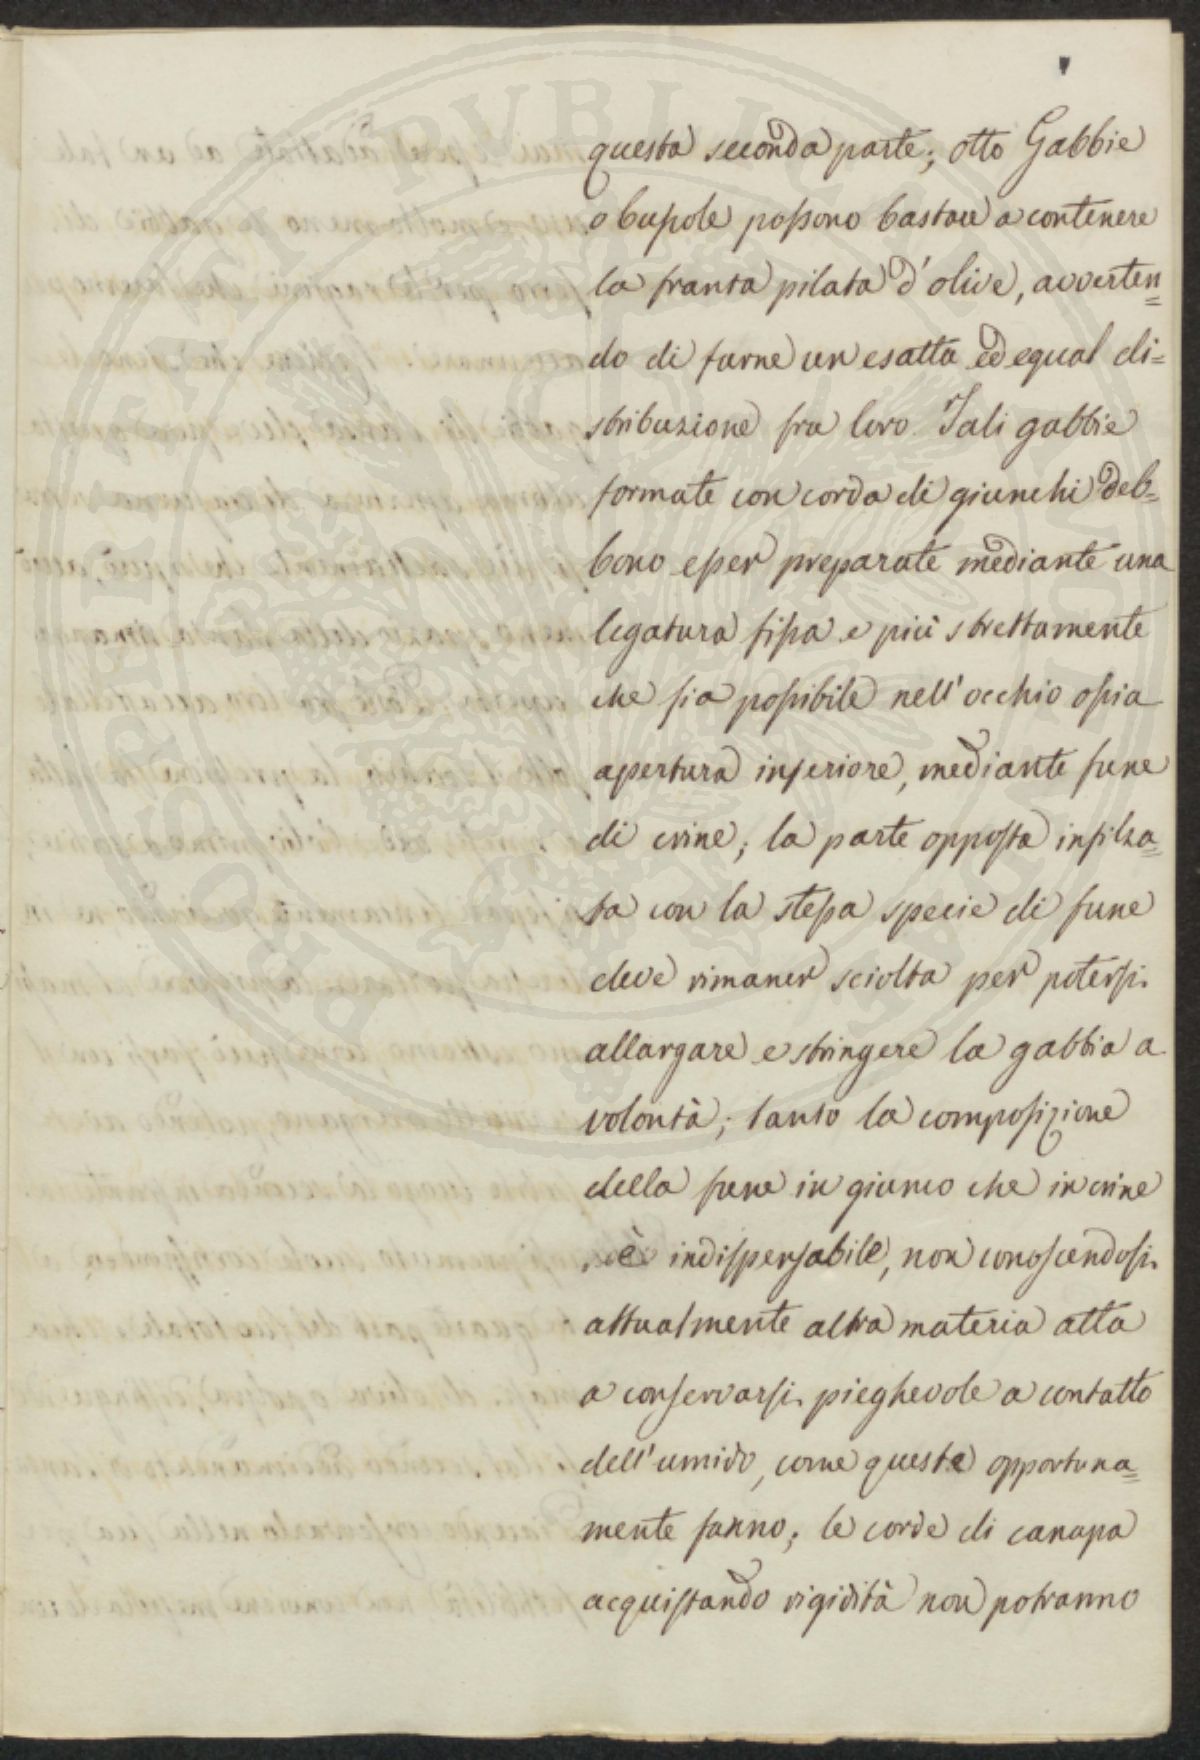 questa seconda parte; otto Gabbie
o buſsole poſsono bastare a contenere
la franta pilata d'olive, avverten=
do di farne un esatta ed equal di=
stribuzione fra loro. Tali gabbie
formate con corda di giunchi deb=
bono eſser preparate mediante una
legatura fiſsa e più strettamente
che ſia poſsibile nell'occhio oſsia
apertura inferiore, mediante fune
di crine; la parte oppoſta infilza=
ta con la steſsa specie di fune
deve rimaner sciolta per poterſi
allargare e stringere la gabbia a
volontà; tanto la compoſizione
della fune in giunco che in crine
è indiſpenſabile, non conoſcendoſi
attualmente altra materia atta
a conſervarſi pieghevole a contatto
dell'umido, come queste opportuna=
mente fanno; le corde di canapa
acquiſtando rigidità non potranno
PROSPERITATI PUBLICAE